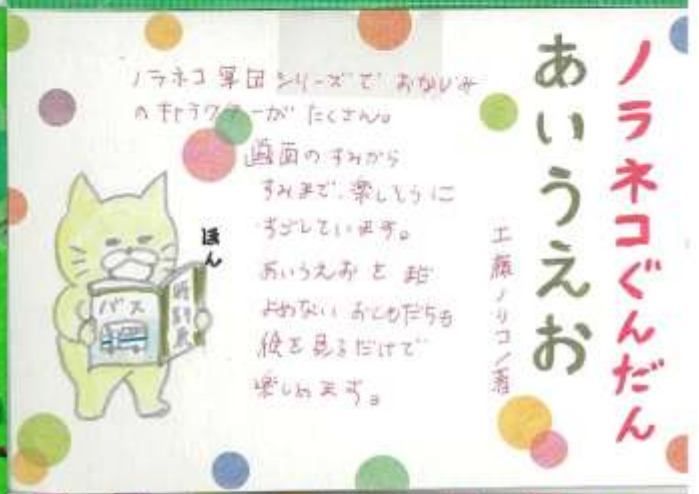 ノラネコぐんだん
あいうえお
工藤ノリコ/著
ノラネコ軍団シリーズで おなじみ
のキャラクターが たくさん。
画面の すみから
すみまで、楽しそうに
すごしています。
あいうえお を まだ
よめない おともだちも
絵を見るだけで
楽しめます。
ほん
バス
時刻表